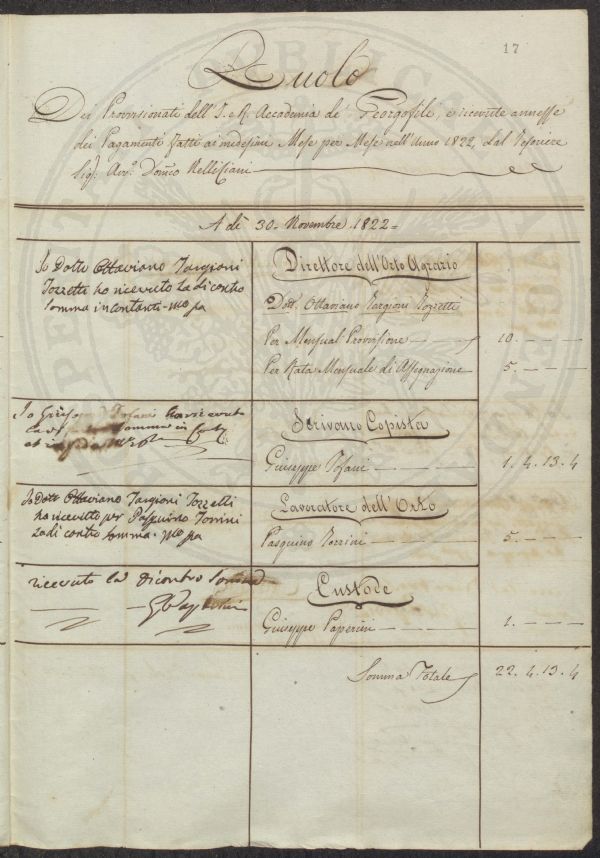 17
Ruolo
Dei Provisionati dell'I. e R. Accademia de' Georgofili, e ricevute annesse
dei Pagamenti fatti ai medesimi Mese per Mese nell'Anno 1822, dal Tesoriere
Sig. Avv.
A dì 30. Novembre 1822=
Io Dotto Ottaviano Targioni
Tozzetti ho ricevuto la di contro
somma in contanti - mo pa
Direttore dell'Orto Agrario
Dott. Ottaviano Targioni Tozzetti
Per Mensual Provisione 10. — — —
Per Rata Mensuale di Assegnazione 5. — — —
Io Tofani ho ricevuto
la somma in
Scrivano Copista
Giuseppe Tofani — — — 1. 4. 13. 4
Io Dott Ottaviano Targioni Tozzetti
ho ricevuto per Pasquino Torrini
la di contro somma - mo pa
Lavoratore dell'Orto
Pasquino Torrini — — — 5. — — —
ricevuto la di contro Somma
G Paperini
Custode
Giuseppe Paperini — — — 1. — — —
Somma Totale 22. 4. 13. 4